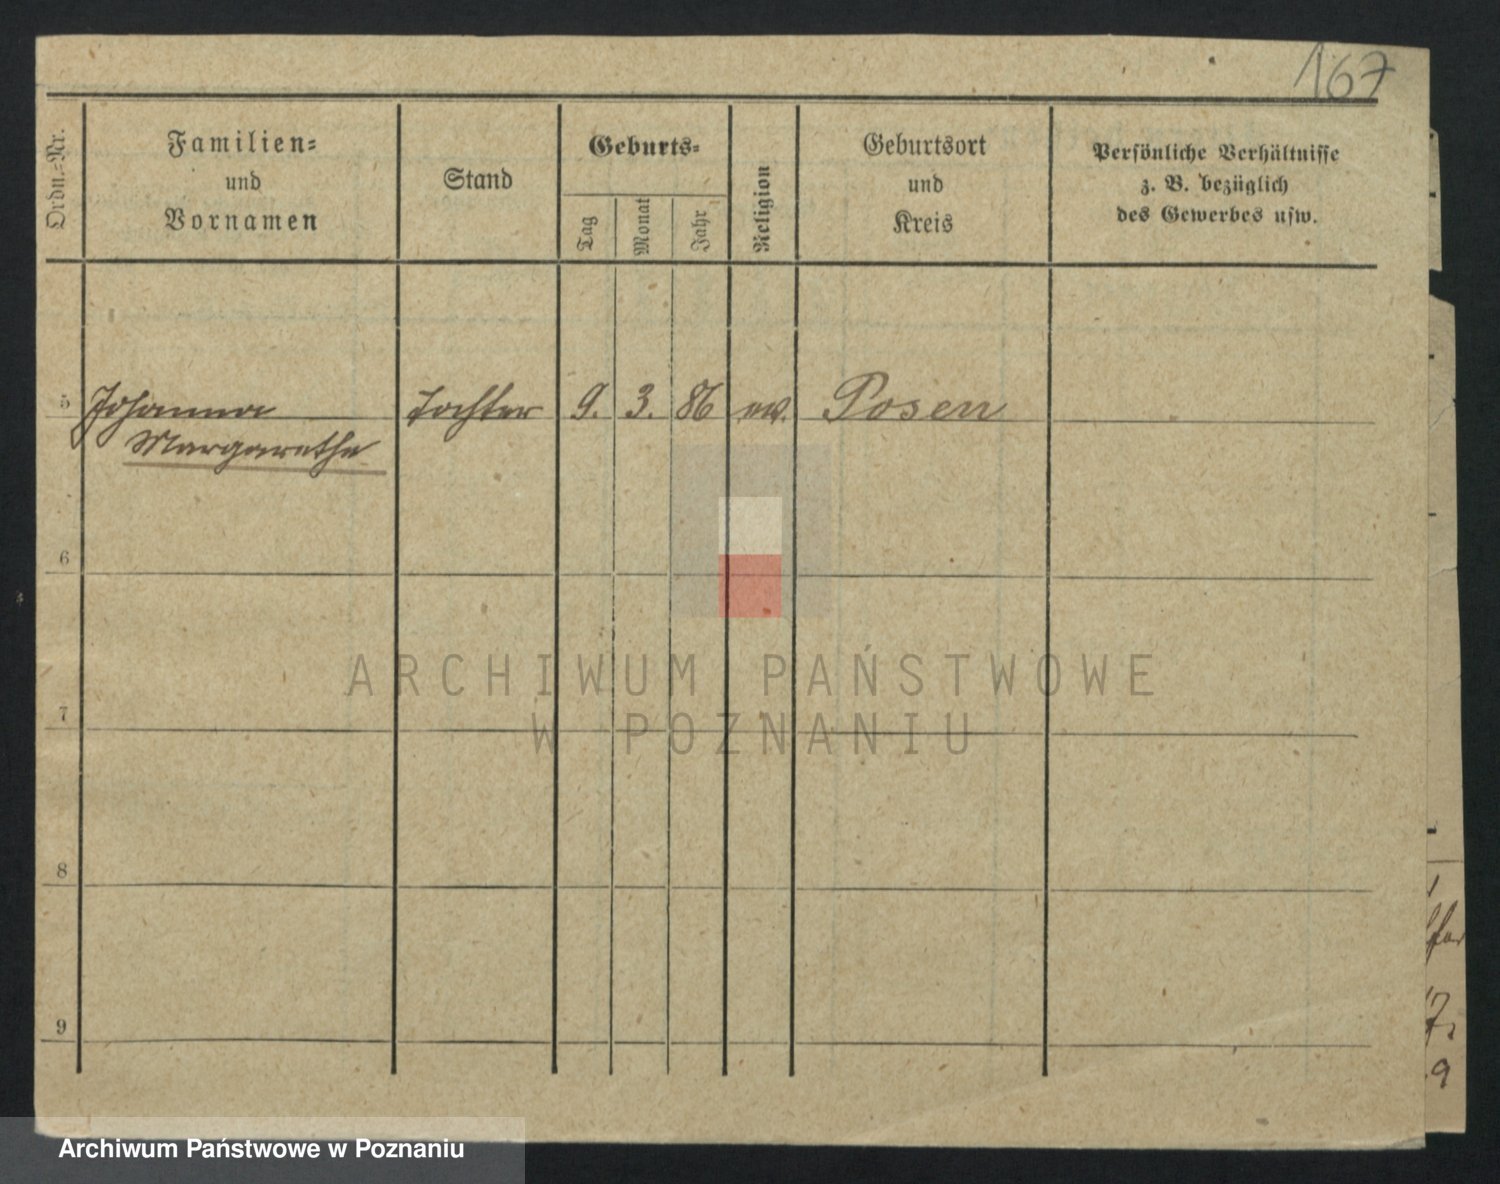 167
Ordn.-Nr.
Familien-
und
Vornamen
Stand
Geburts-
Tag
Monat
Jahr
Religion
Geburtsort
und
Kreis
Persönliche Verhältnisse
z. B. bezüglich
des Gewerbes usw.
5 Johanna Tochter 9. 3. 86 ev. Posen
Margarethe
6
7
8
9
ARCHIWUM PAŃSTWOWE
W POZNANIU
7.
9
Archiwum Państwowe w Poznaniu